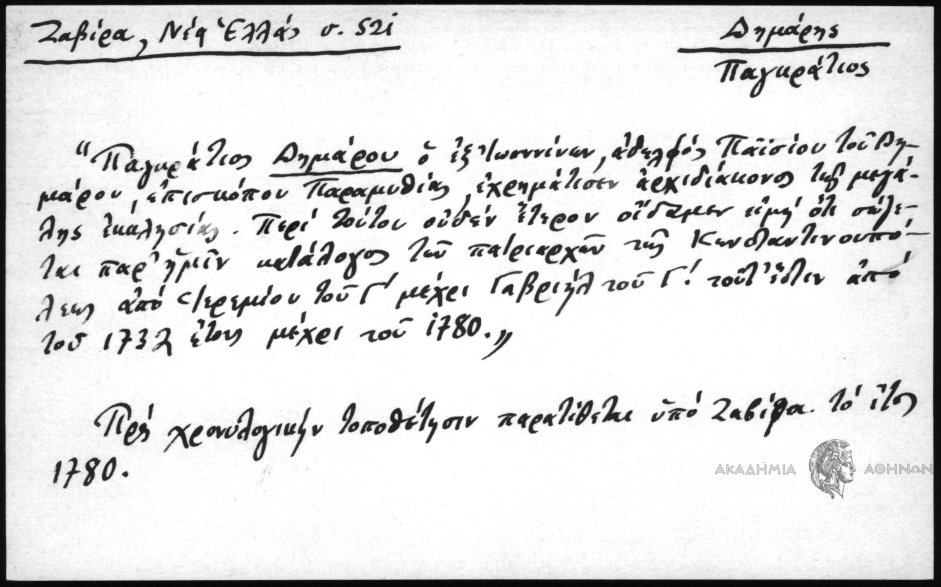 Ζαβίρα, Νέα Ἑλλάς σ. 521
Δημάρης
Παγκράτιος
"Παγκράτιος Δημάρου ὁ ἐξ Ἰωαννίνων, ἀδελφός Παϊσίου τοῦ Δη-
μάρου, ἐπισκόπου Παραμυθίας, ἐχρημάτισεν ἀρχιδιάκονος τῆς μεγά-
λης ἐκκλησίας. Περί τούτου οὐδέν ἕτερον οἴδαμεν εἰμή ὅτι σώζε-
ται παρ' ἡμῖν κατάλογος τῶν πατριαρχῶν τῆς Κωνσταντινουπό-
λεως ἀπό Ἱερεμίου τοῦ Γ' μέχρι Γαβριήλ τοῦ Γ'. τοῦτ' ἔστιν ἀπό
τοῦ 1732 ἔτους μέχρι τοῦ 1780.„
Πρός χρονολογικήν τοποθέτησιν παρατίθεται ὑπό Ζαβίρα τό ἔτος
1780.
ΑΚΑΔΗΜΙΑ ΑΘΗΝΩΝ